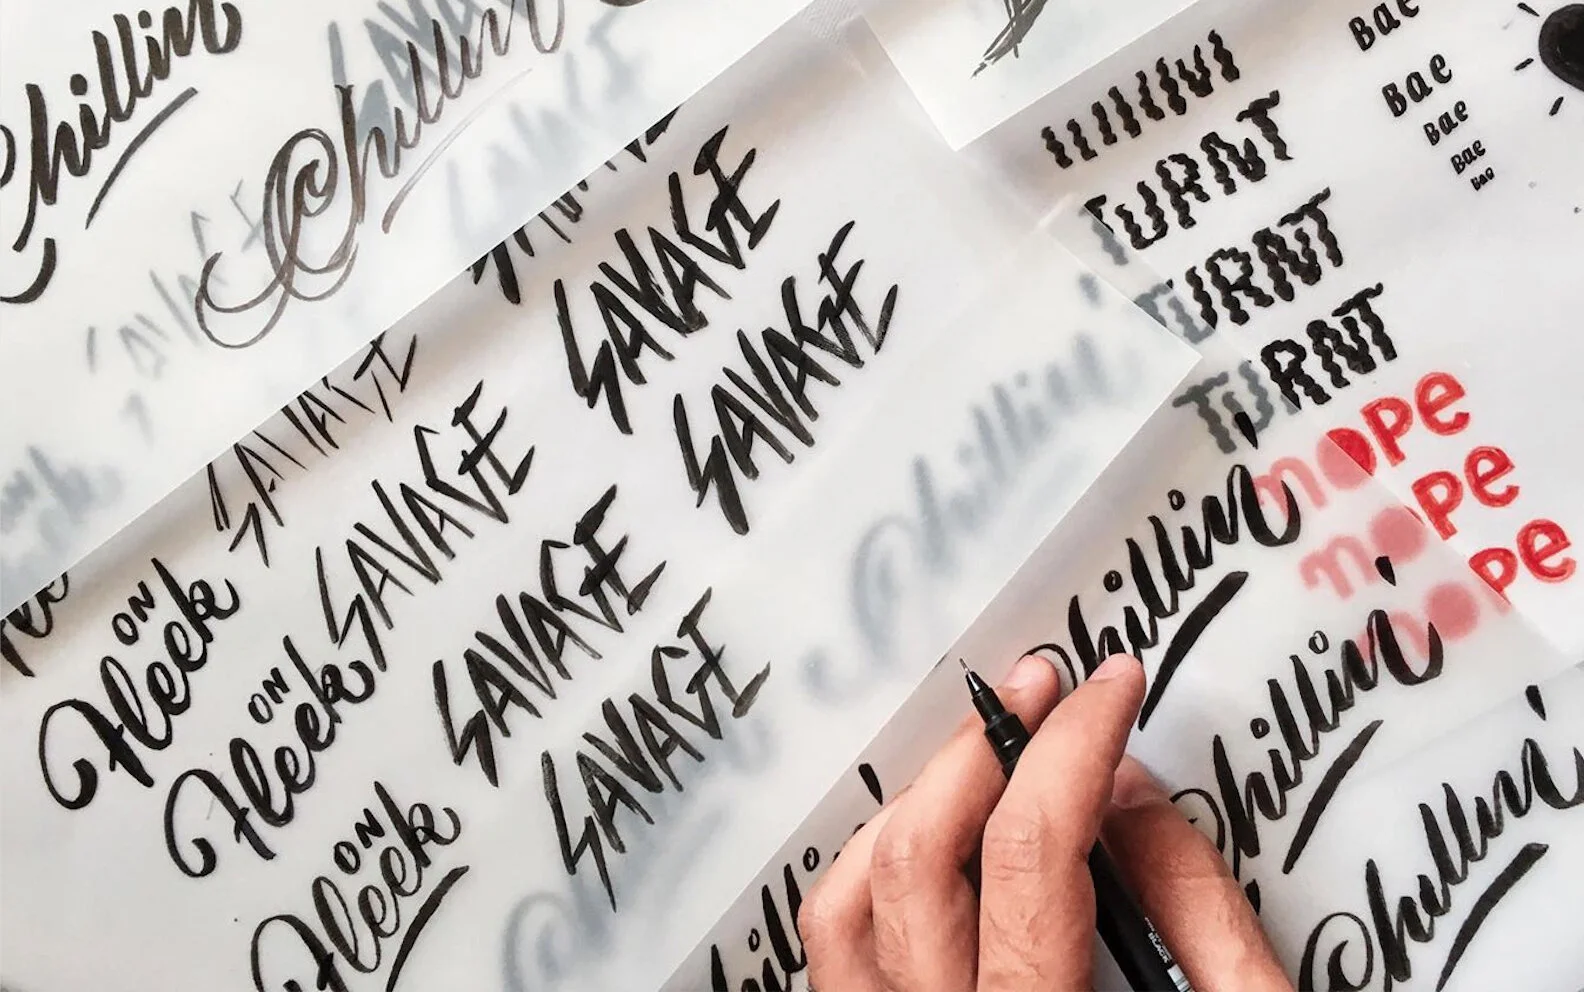 Chillin'
Chillin'
SAVAGE
SAVAGE
SAVAGE
SAVAGE
SAVAGE
SAVAGE
SAVAGE
ON
Fleek
ON
Fleek
ON
Fleek
Chillin'
TURNT
TURNT
TURNT
Bae
Bae
Bae
Bae
Bae
nope
nope
nope
Chillin'
Chillin'
Chillin'
BLACK